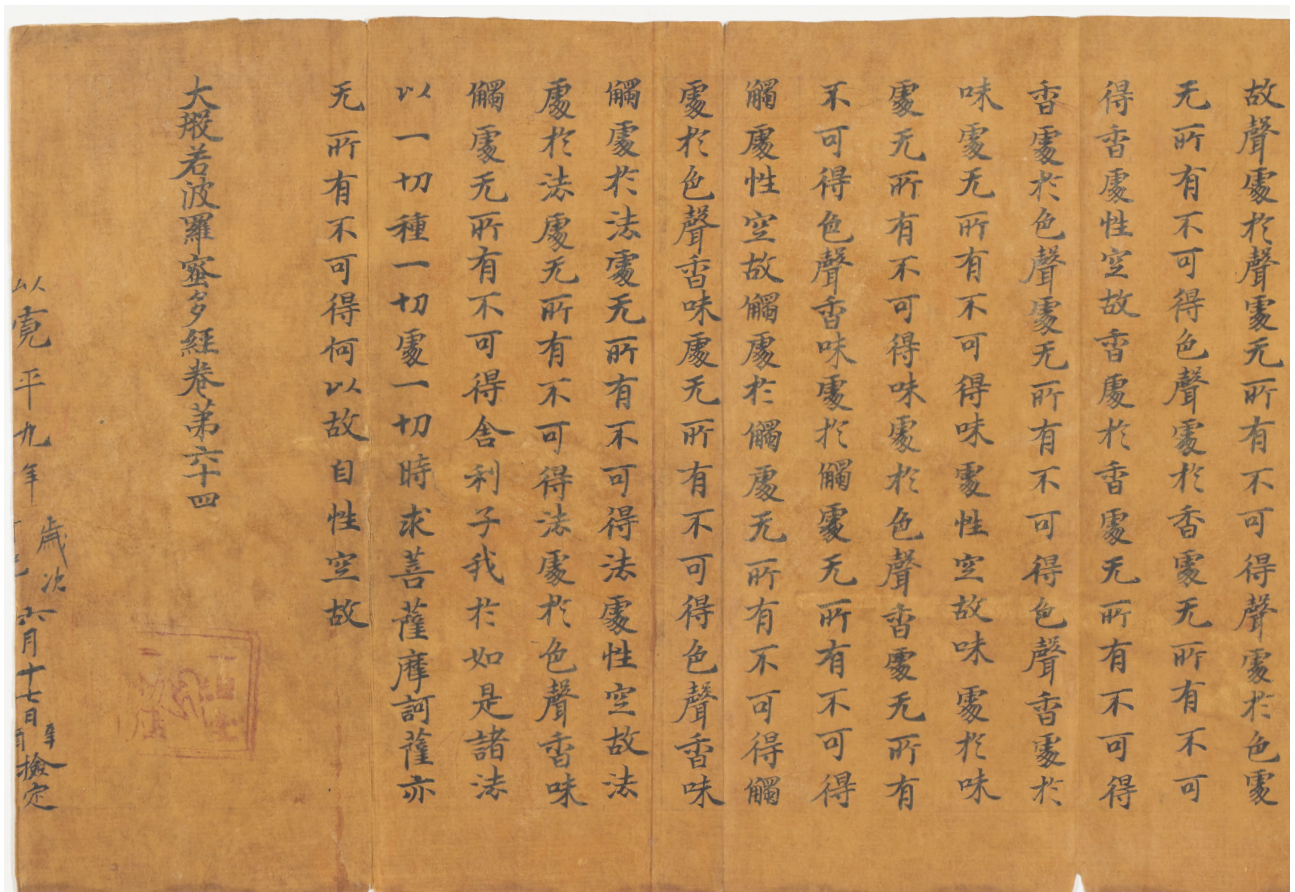 故聲處於聲處无所有不可得聲處於色處
无所有不可得色聲處於香處无所有不可
得香處性空故香處於香處无所有不可得
香處於色聲處无所有不可得色聲香處於
味處无所有不可得味處性空故味處於味
處无所有不可得味處於色聲香處无所有
不可得色聲香味處於觸處无所有不可得
觸處性空故觸處於觸處无所有不可得觸
處於色聲香味處无所有不可得色聲香味
觸處於法處无所有不可得法處性空故法
處於法處无所有不可得法處於色聲香味
觸處无所有不可得舍利子我於如是諸法
以一切種一切處一切時求菩薩摩訶薩亦
无所有不可得何以故自性空故
大般若波羅蜜多經卷第六十四
以寛平九年歲次六月十七日檢定